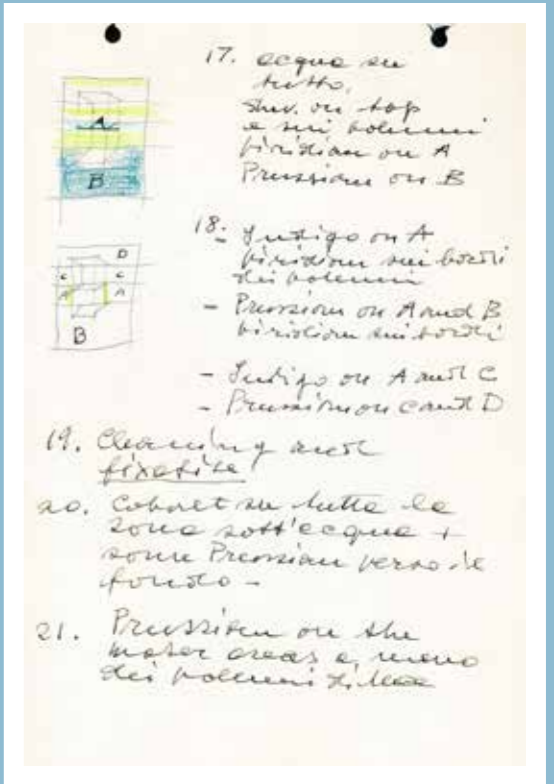 17. acqua su
tutto,
on top
e sui volumi
viridian on A
Prussian on B
A
B
18. Indigo on A
viridian sui bordi
dei volumi
- Prussian on A and B
viridian sui bordi
D
C C
A A
B
- Indigo on A and C
- Prussian on C and D
19. Cleaning and
fixative
20. Cobalt su tutta la
zona sott'acqua +
some Prussian verso il
fondo -
21. Prussian on the
water areas e, meno
dei volumi